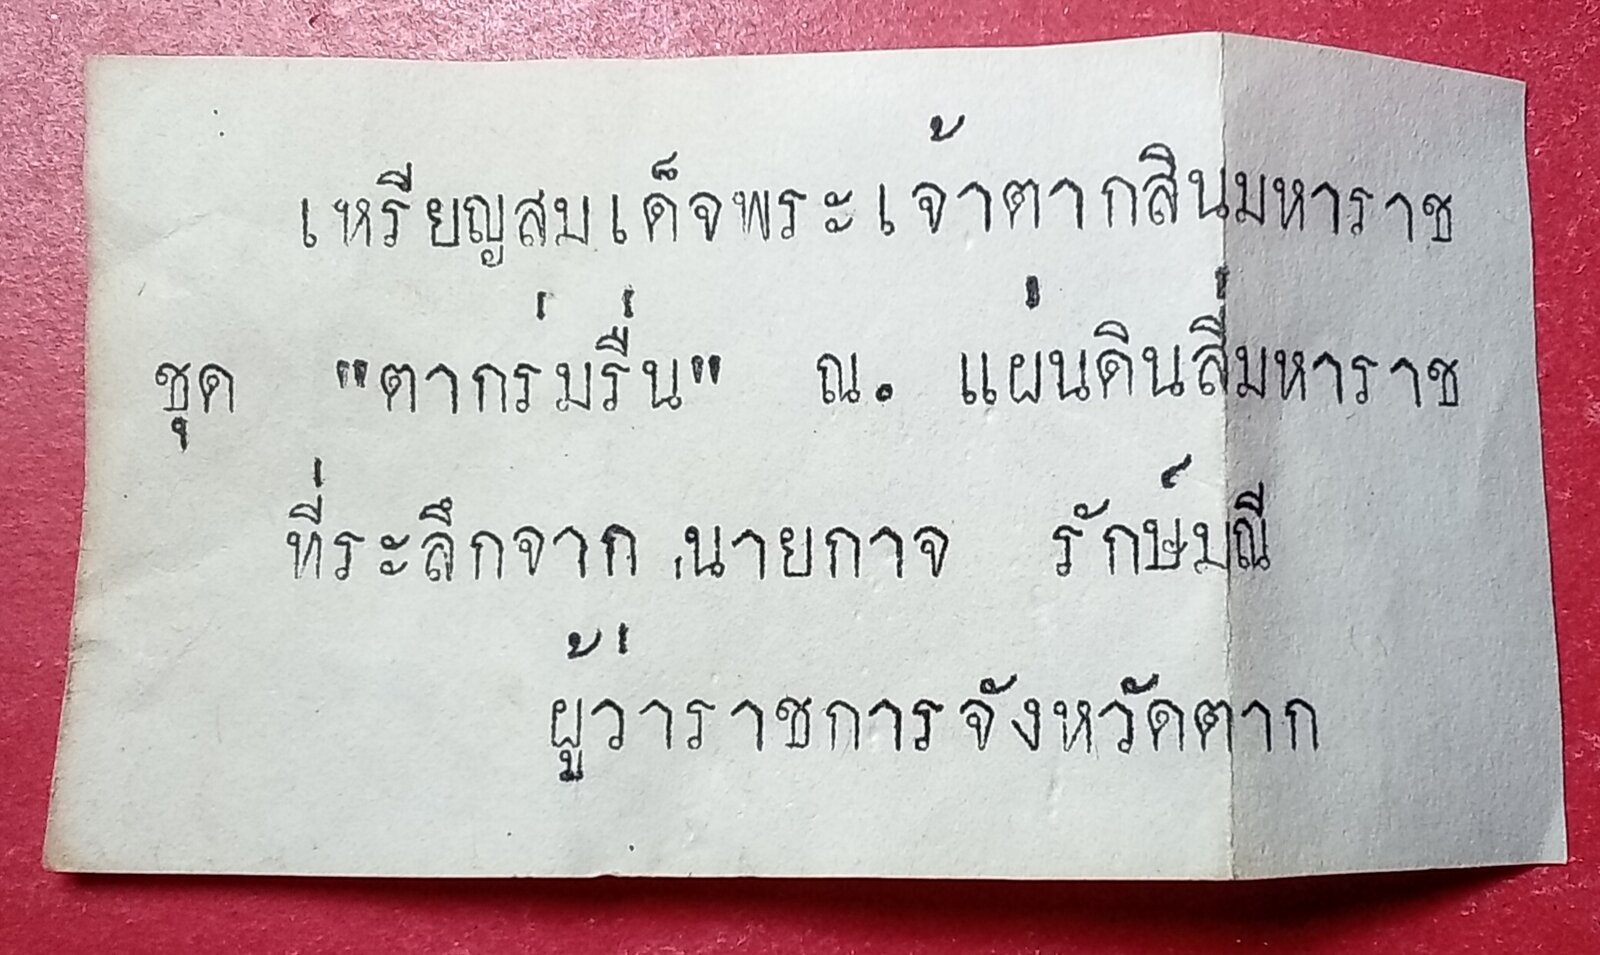 เหรียญสมเด็จพระเจ้าตากสินมหาราช
ชุด "ตากร่มรื่น" ณ. แผ่นดินสี่มหาราช
ที่ระลึกจาก นายกาจ รักษ์มณี
ผู้ว่าราชการจังหวัดตาก